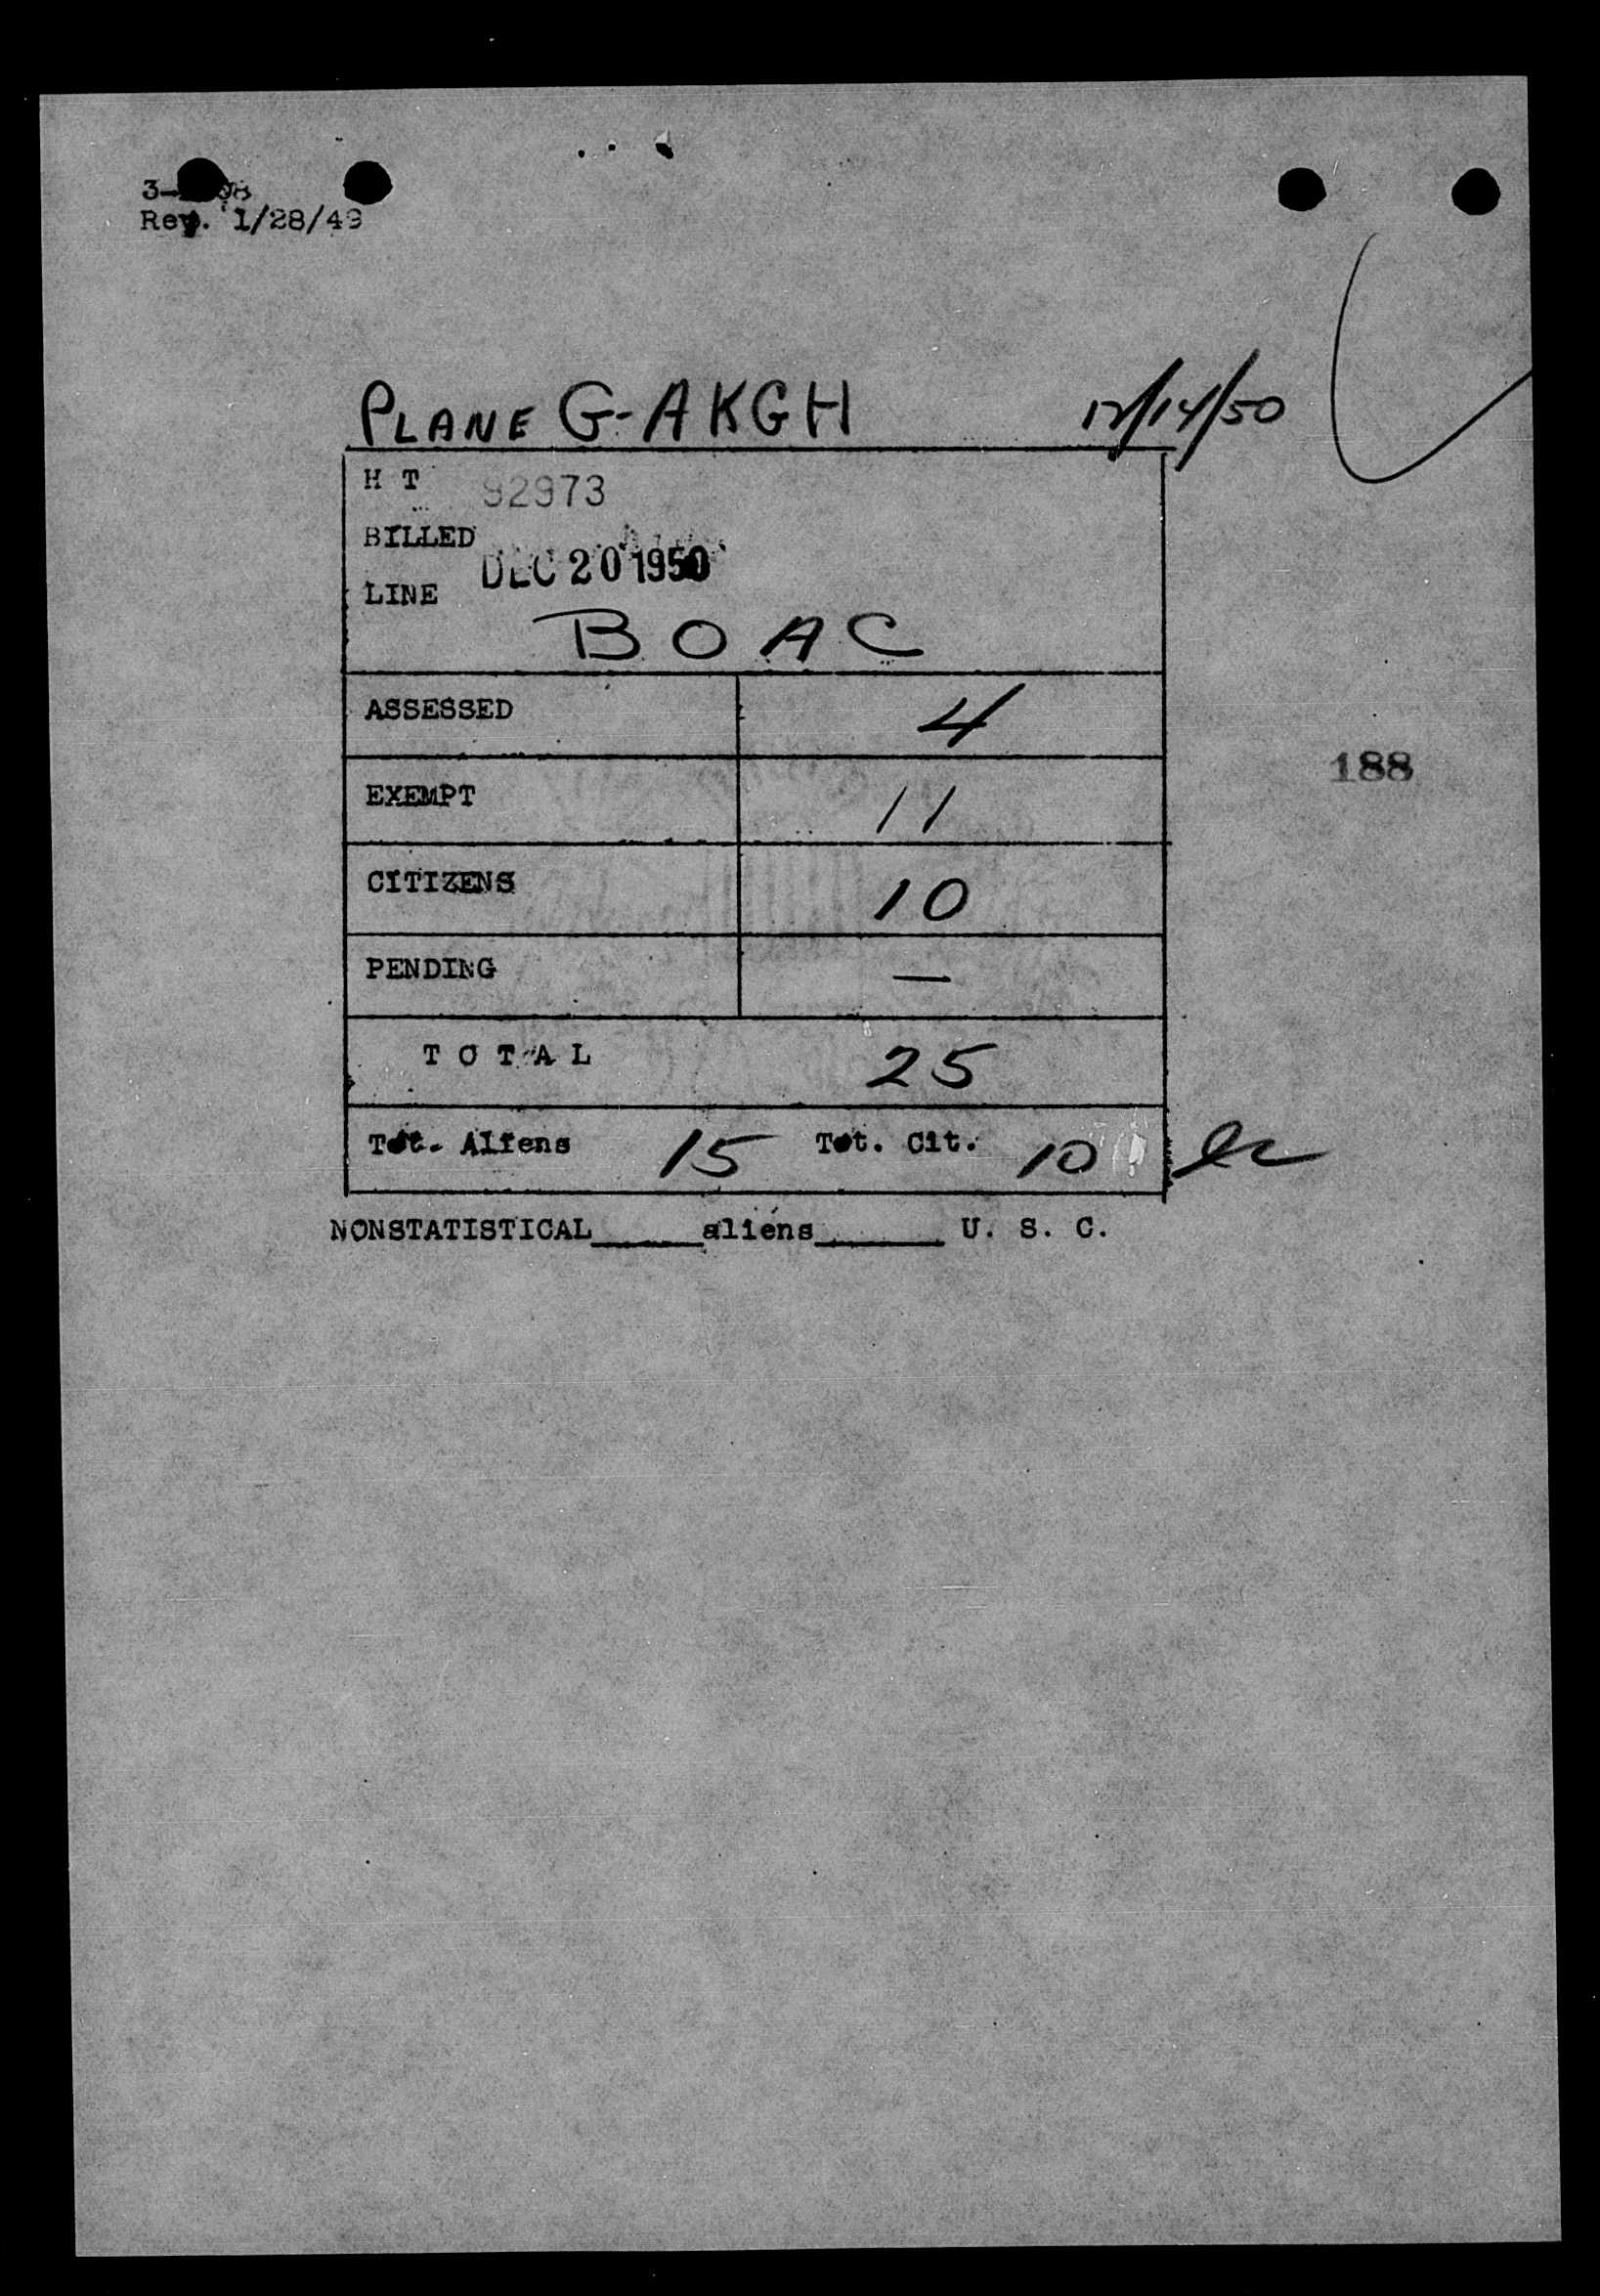 Rev. 1/28/49
PLANE G-AKGH 12/14/50
H T 92973
BILLED DEC 20 1950
LINE
BOAC
ASSESSED 4
EXEMPT 11
188
CITIZENS 10
PENDING —
T O T A L 25
Tot. Aliens 15 Tot. Cit. 10
NONSTATISTICAL_____aliens______ U. S. C.